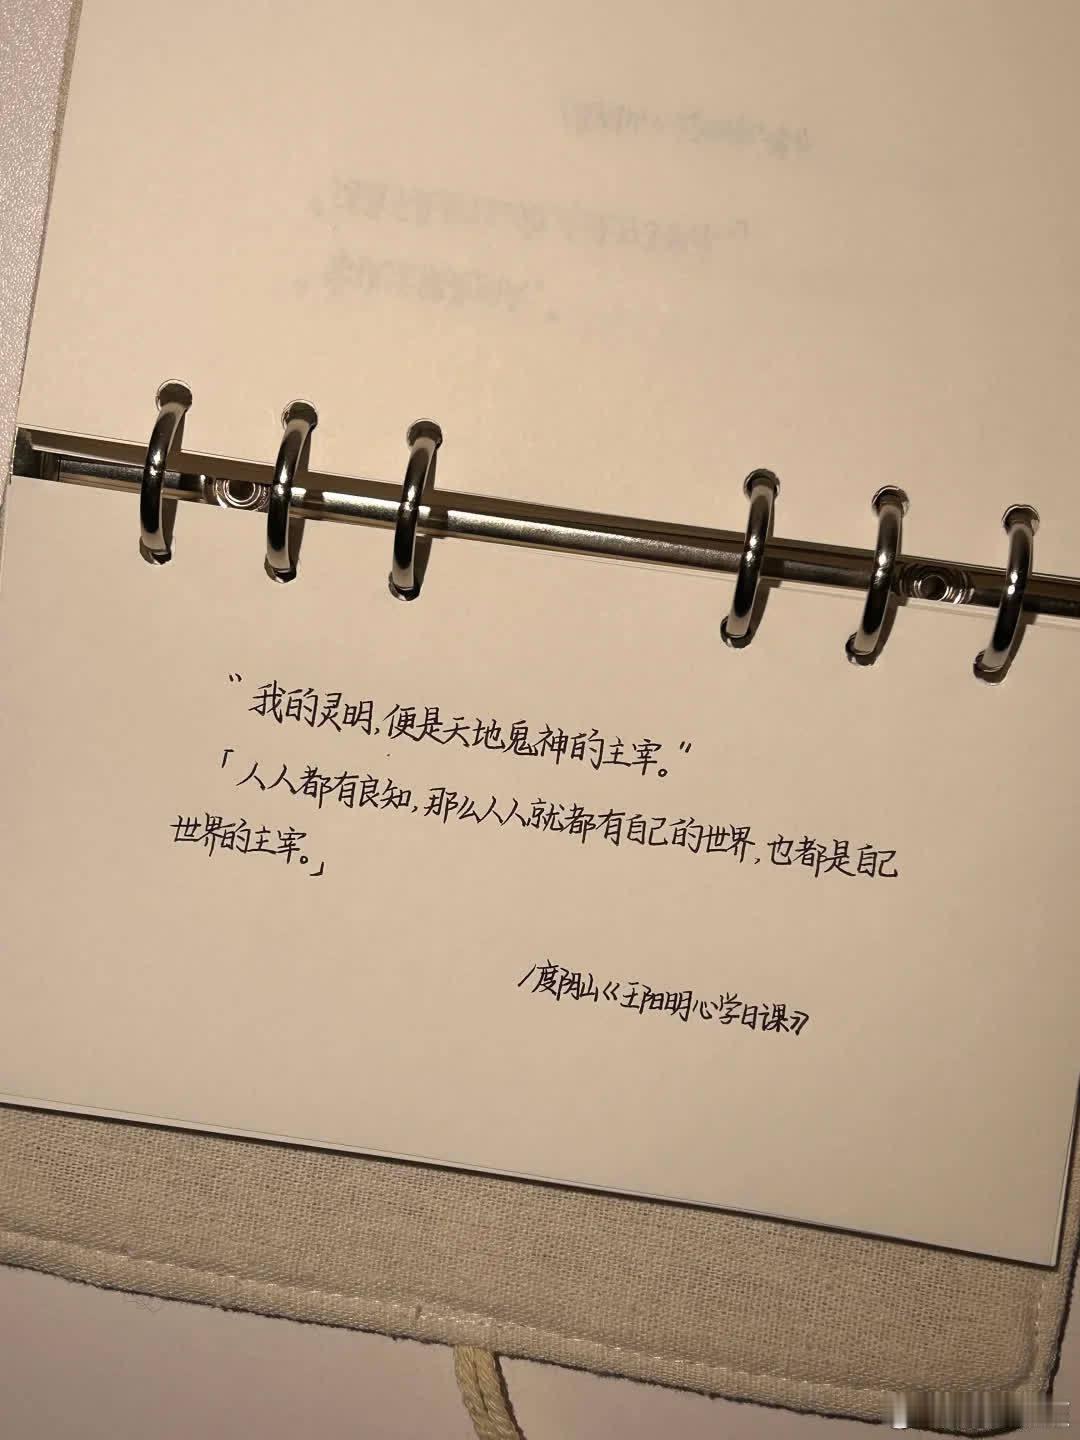 “我的灵明,便是天地鬼神的主宰。”
「人人都有良知,那么人人就都有自己的世界,也都是自己
世界的主宰。」
/度阴山《王阳明心学日课》